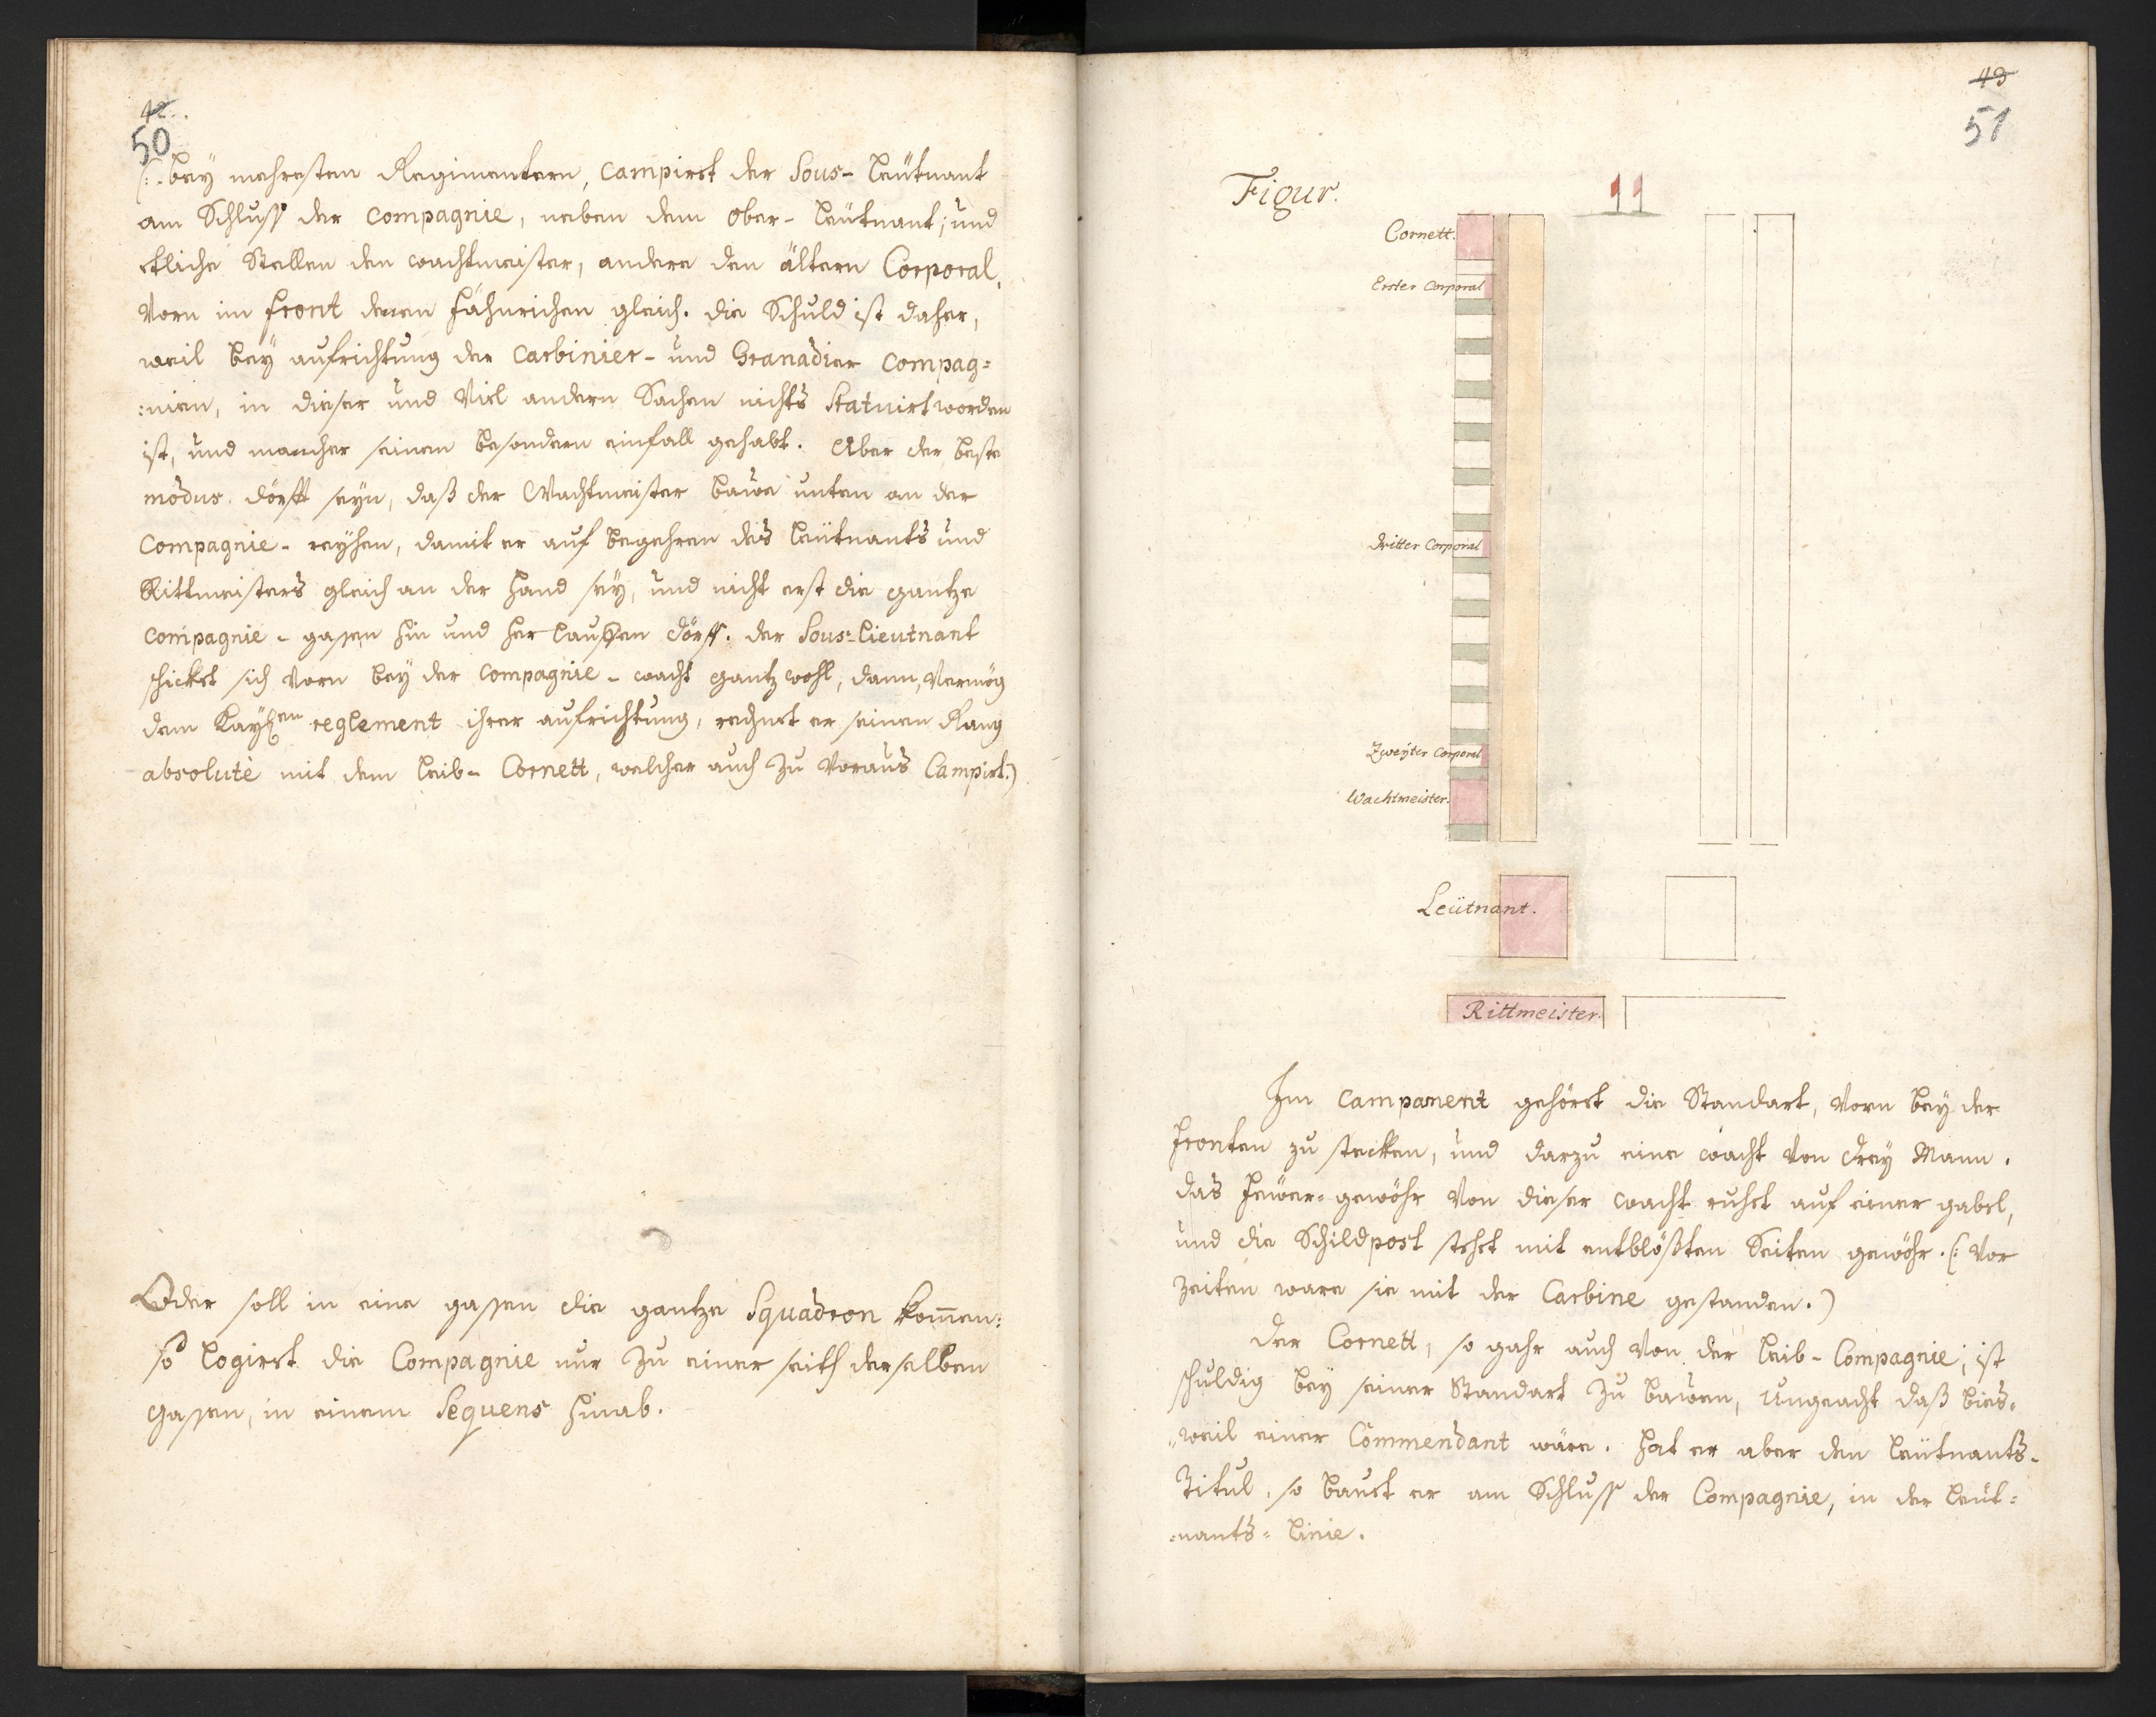 42.
50
(: bey mehresten Regimentern, campirt der Sous-Leütnant
am Schluss der compagnie, neben dem ober-Leütnant; und
etliche Stellen den wachtmeister, andere den ältern Corporal,
Vorn im front denen Fähnrichen gleich. die Schuld ist daher,
weil bey aufrichtung der Carbinier- und Granadier compag=
:nien, in dieser und Viel andern Sachen nichts Statuirt worden
ist, und mancher seinen besondern einfall gehabt. Aber der beste
modus dörfft seyn, daß der Wachtmeister baue unten an der
Compagnie-reyhen, damit er auf begehren des Leütnants und
Rittmeisters gleich an der Hand sey, und nicht erst die gantze
compagnie-gassen hin und her lauffen dörff. der Sous-Lieutnant
schicket sich Vorn bey der compagnie-wacht gantz wohl, dann, Vermög
dem Kay:en reglement ihrer aufrichtung, rechnet er seinen Rang
absolutè mit dem Leib-Cornett, welcher auch zu Voraus Campirt:)
Oder soll in eine gassen die gantze Squadron kom̄en:
so logiert die Compagnie nur zu einer seith derselben
gassen, in einem Sequens hinab.
43
51
Figur.
11
Cornett.
Erster Corporal
dritter Corporal
Zweyter Corporal
Wachtmeister.
Leütnant.
Rittmeister.
Im campament gehört die Standart, Vorn bey der
Fronten zu stecken, und darzu eine wacht Von drey Mann.
das Feüer-gewöhr Von dieser wacht ruhet auf einer gabel,
und die Schildpost stehet mit entblößten Seiten gewöhr. (: Vor
Zeiten ware sie mit der Carbine gestanden.)
der Cornett, so gahr auch Von der Leib-Compagnie, ist
schuldig bey seiner Standart zu bauen, Ungeacht daß bies=
„weil einer Commendant wäre. hat er aber den Leütnants-
Titul, so bauet er am Schluss der Compagnie, in der Leüt=
:nants=Linie.